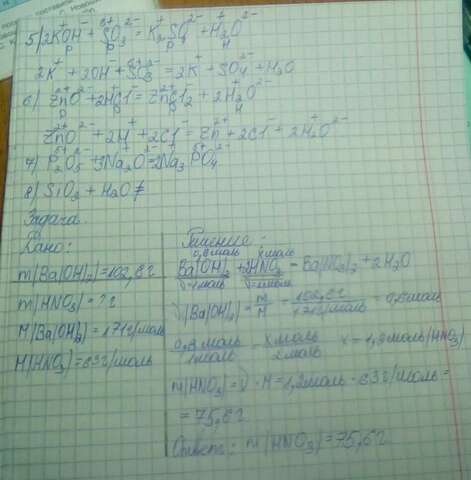 5) 2KOH + SO3 = K2SO4 + H2O
2K⁺ + 2OH⁻ + SO3 = 2K⁺ + SO4²⁻ + H2O
6) ZnO + 2HCl = ZnCl2 + 2H2O
ZnO + 2H⁺ + 2Cl⁻ = Zn²⁺ + 2Cl⁻ + 2H2O
7) P2O5 + 3Na2O = 2Na3PO4
8) SiO2 + H2O ≠
Задача.
Дано:
m(Ba(OH)2) = 102,6г
m(HNO3) = ? г
M(Ba(OH)2) = 171г/моль
M(HNO3) = 63г/моль
Решение:
0,6моль xмоль
Ba(OH)2 + 2HNO3 = Ba(NO3)2 + 2H2O
ν=1моль ν=2моль
ν(Ba(OH)2) = m/M = 102,6г/171г/моль = 0,6моль
0,6моль/1моль = xмоль/2моль x = 1,2моль(HNO3)
m(HNO3) = ν · M = 1,2моль · 63г/моль =
= 75,6г
Ответ: m(HNO3) = 75,6г